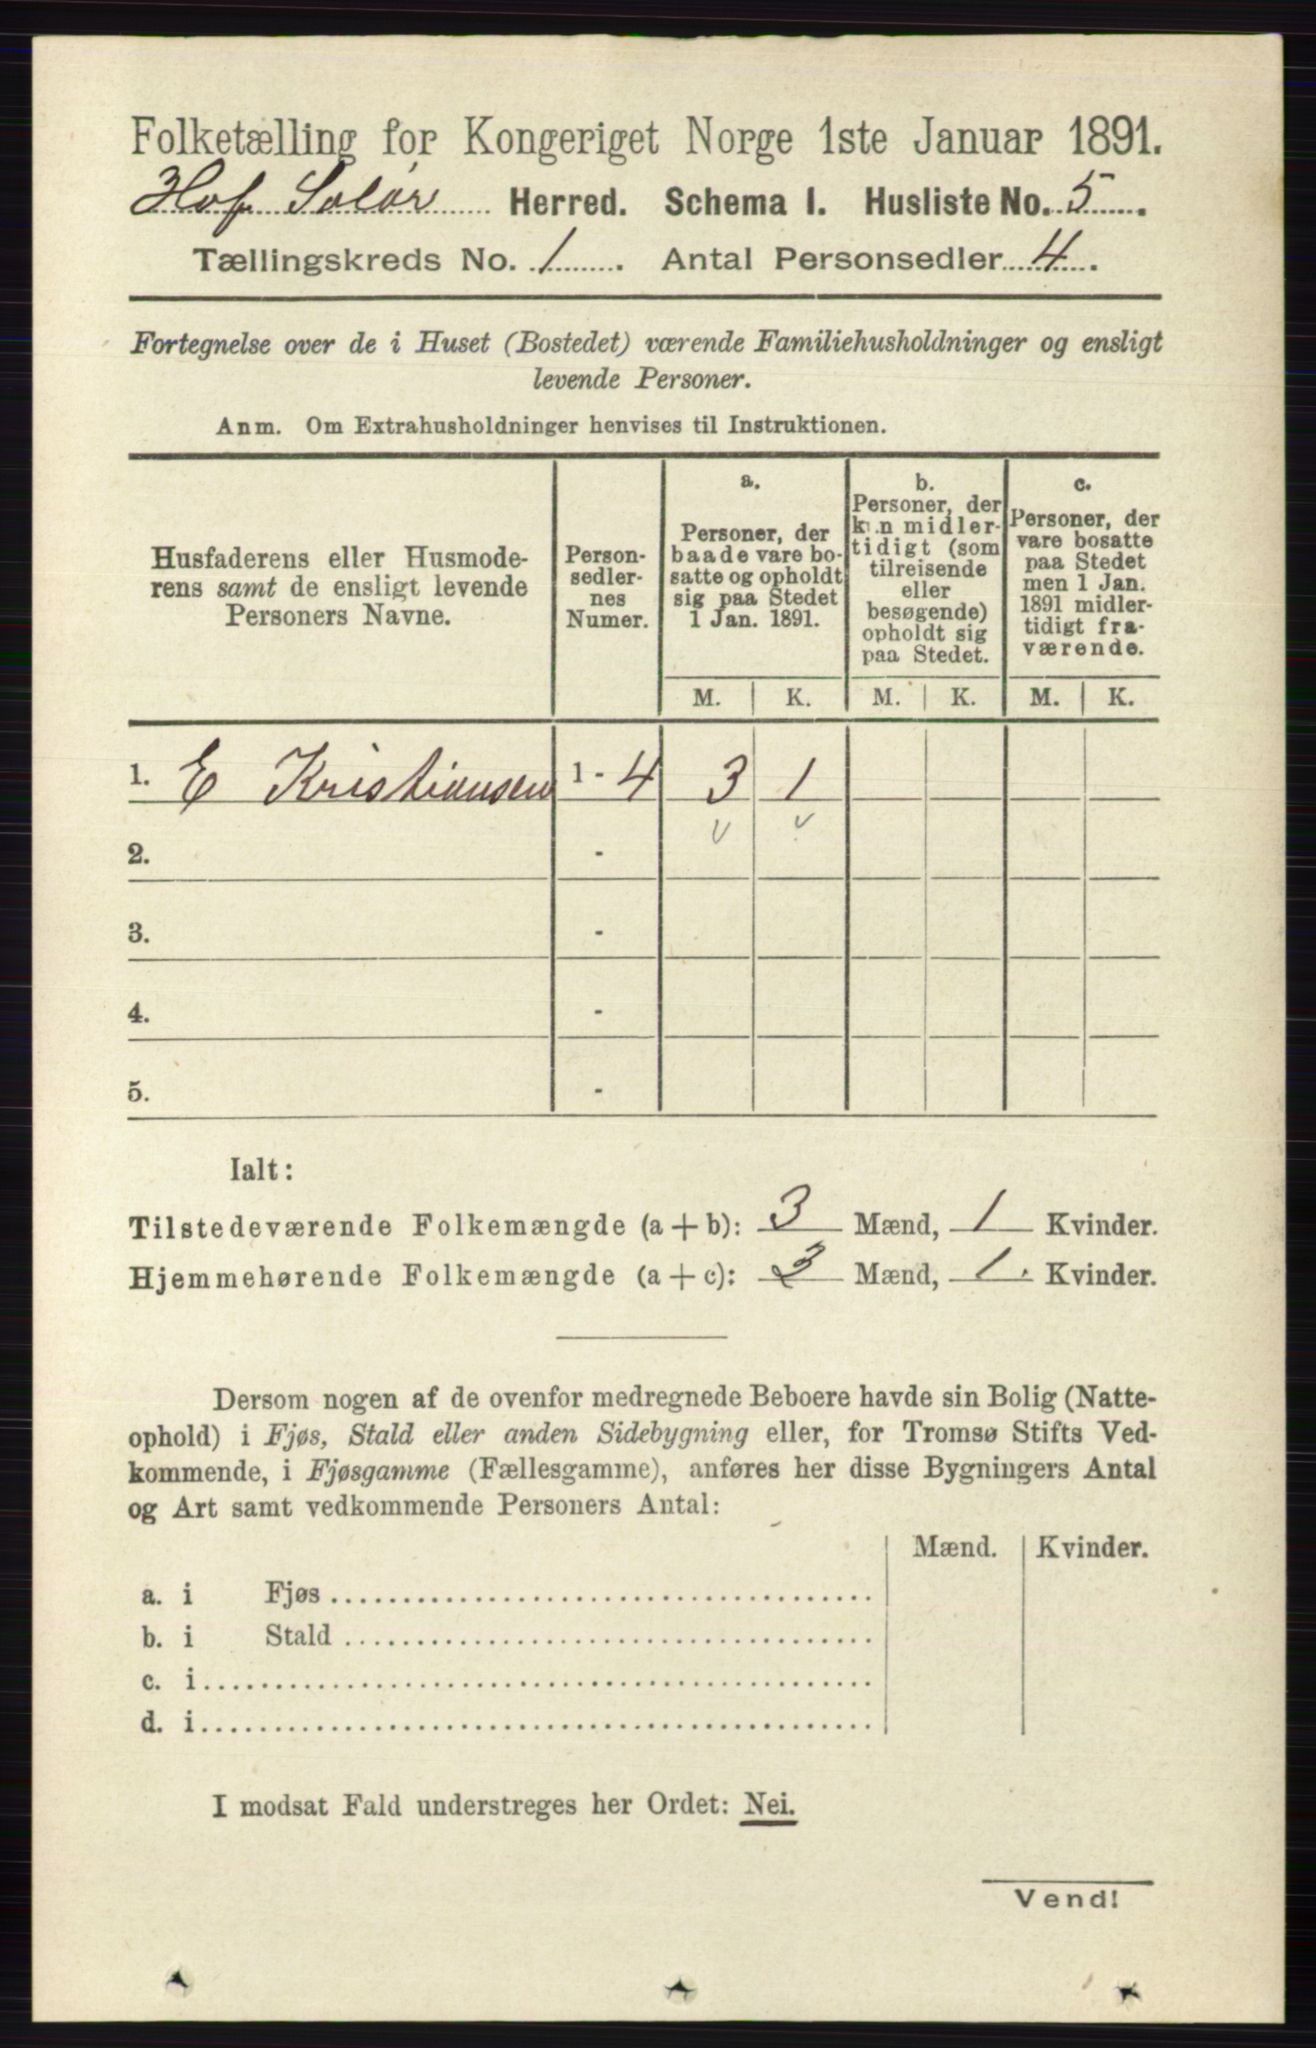 Folketælling for Kongeriget Norge 1ste Januar 1891.
Hof Solør Herred. Schema I. Husliste No. 5.
Tællingskreds No. 1. Antal Personsedler 4.
Fortegnelse over de i Huset (Bostedet) værende Familiehusholdninger og ensligt
levende Personer.
Anm. Om Extrahusholdninger henvises til Instruktionen.
Husfaderens eller Husmode-
rens samt de ensligt levende
Personers Navne.
Person-
sedler-
nes
Numer.
a.
Personer, der
baade vare bo-
satte og opholdt
sig paa Stedet
1 Jan. 1891.
b.
Personer, der
kun midler-
tidigt (som
tilreisende
eller
besøgende)
opholdt sig
paa Stedet.
c.
Personer, der
vare bosatte
paa Stedet
men 1 Jan.
1891 midler-
tidigt fra-
værende.
M. K. M. K. M. K.
1. E Kristiansen 1 - 4 3 1
2. -
3. -
4. -
5. -
Ialt:
Tilstedeværende Folkemængde (a + b): 3 Mænd, 1 Kvinder.
Hjemmehørende Folkemængde (a + c): 3 Mænd, 1. Kvinder.
Dersom nogen af de ovenfor medregnede Beboere havde sin Bolig (Natte-
ophold) i Fjøs, Stald eller anden Sidebygning eller, for Tromsø Stifts Ved-
kommende, i Fjøsgamme (Fællesgamme), anføres her disse Bygningers Antal
og Art samt vedkommende Personers Antal:
Mænd. Kvinder.
a. i Fjøs
b. i Stald
c. i
d. i
I modsat Fald understreges her Ordet: Nei.
Vend!